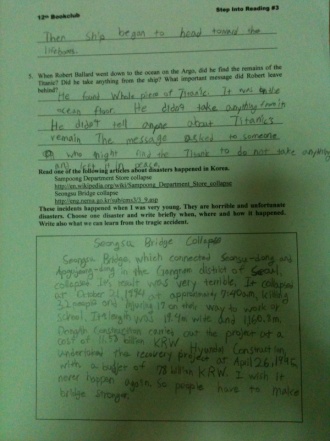 12th Bookclub
Step into Reading #3
Then ship began to head toward the
5. When Robert Ballard went down to the ocean on the Argo, did he find the remains of the
Titanic? Did he take anything from the ship? What important message did Robert leave
behind?
He found whole piece of Titanic. It was
ocean floor. He didn't take anything
He didn't tell anyone about Titanic's
remain The message asked to someone
who might find the Titanic to do not take anything
and left it in peace.
Read one of the following articles about disasters happened in Korea.
Sampoong Department Store collapse
http://en.wikipedia.org/wiki/Sampoong_Department_Store_collapse
Seongsu Bridge collapse
These incidents happened when I was very young. They are horrible and unfortunate
disasters. Choose one disaster and write briefly when, where and how it happened.
Write also what we can learn from the tragic accident.
Seongsu Bridge Collapse
Seongsu Bridge, which connected Seongsu-dong and
Apgujeong-dong in the Gangnam district of Seoul,
collapsed. Its result was very terrible. It collapsed
at October 21, 1994 at approximately 7:40am, killing
32 people and injuring 18 on the way to work or
school. Its length was 19.4m wide and 1,160.8m.
Dongah Construction carried out the project at a
cost of 11.58 billion KRW. Hyundai Construction
undertake the recovery project at April 26, 1995
with a buffer of 78 billion KRW. I wish it
never happen again. So people have to make
bridge stronger.